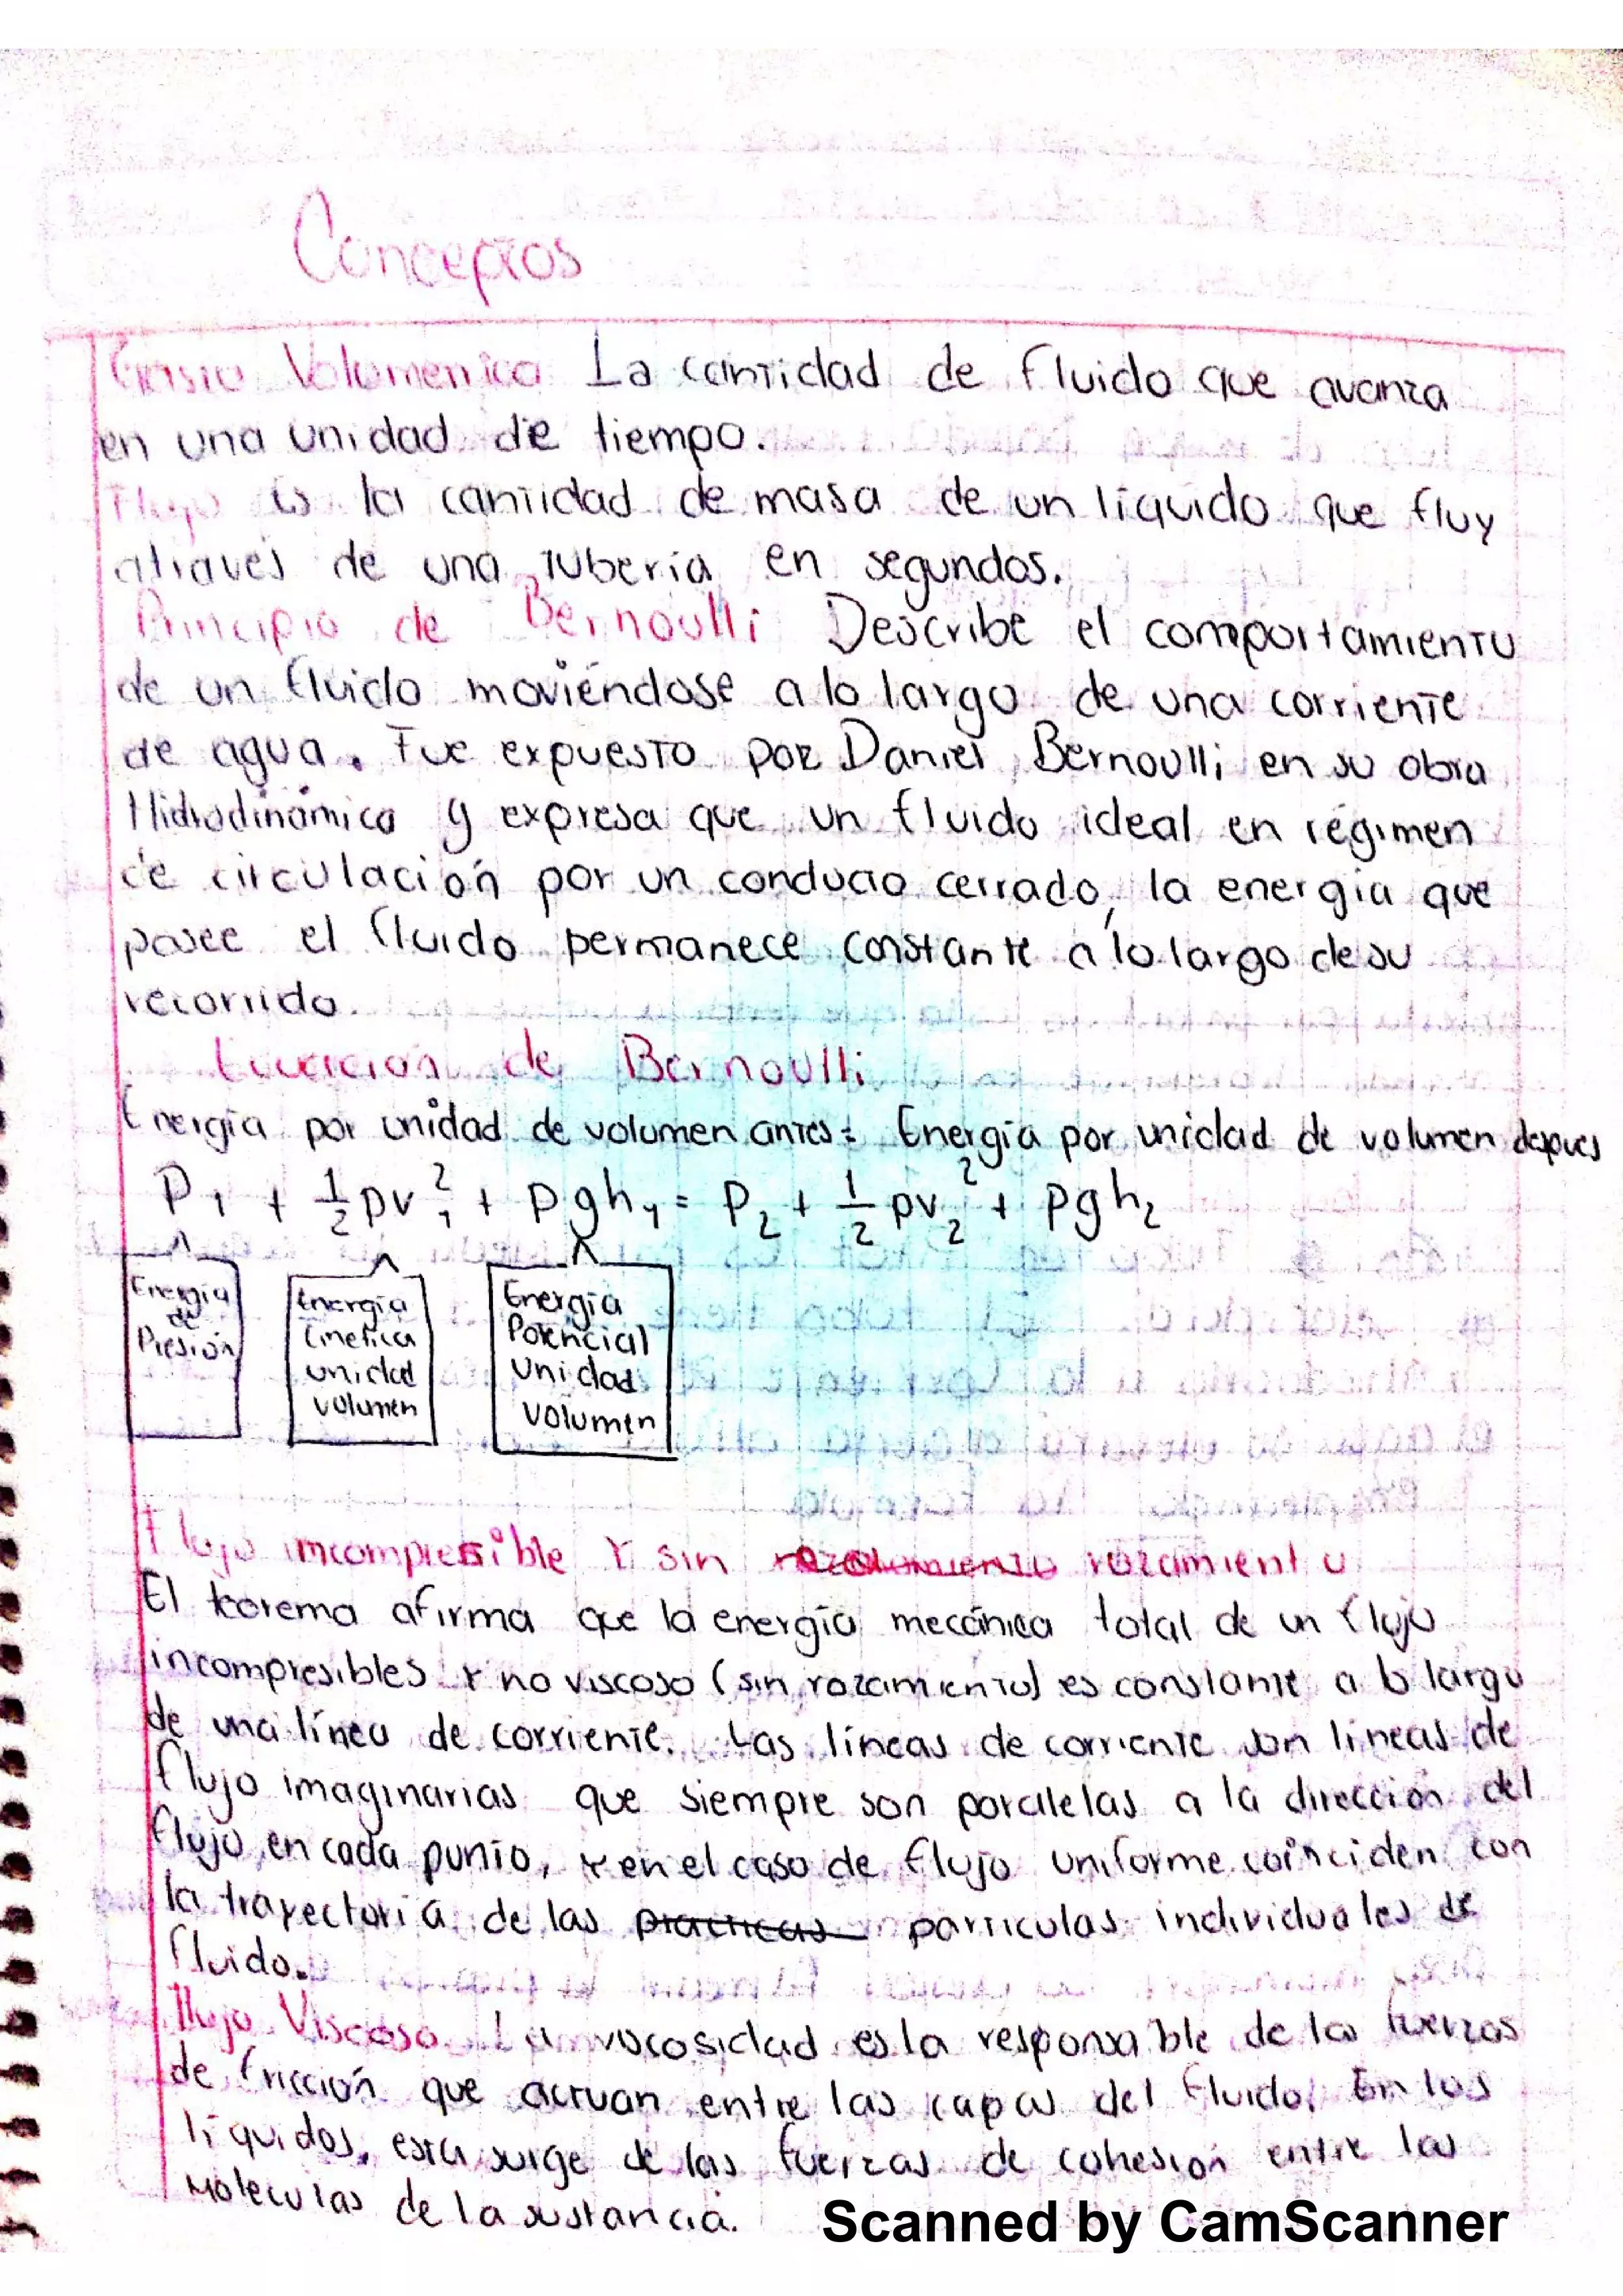 Conceptos
Gasto Volumenico La cantidad de fluido que avanza
en una unidad de tiempo.
Flujo es la cantidad de masa de un líquido que fluy
atraves de una tubería en segundos.
Principio de Bernoulli Describe el comportamiento
de un fluido moviéndose a lo largo de una corriente
de agua. Fue expuesto por Daniel Bernoulli en su obra
Hidrodinámica y expresa que un fluido ideal en régimen
de circulación por un conducto cerrado, la energia que
posee el fluido permanece constante a lo largo de su
recorrido.
Ecuación de Bernoulli
Energía por unidad de volumen antes = Energía por unidad de volumen depues
P1 + 1/2 pv1² + pgh1 = P2 + 1/2 pv2² + pgh2
Energía de Presión
Energía Cinetica unidad volumen
Energía Potencial Unidad Volumen
Flujo imcompresible Y sin rozamiento
El teorema afirma que la energía mecánica total de un flujo
incompresibles Y no viscoso (sin rozamiento) es constante a lo largo
de una línea de corriente. Las líneas de corriente son lineas de
flujo imaginarias que siempre son paralelas a la dirección del
flujo en cada punto, Y en el caso de flujo uniforme coinciden con
la trayectoria de las practicas particulas individuales de
fluido.
Flujo Viscoso La viscosidad es la responsable de las fuerzas
de fricción que actuan entre las capas del fluido. En los
líquidos, esta surge de las fuerzas de cohesión entre las
Moleculas de la sustancia.
Scanned by CamScanner